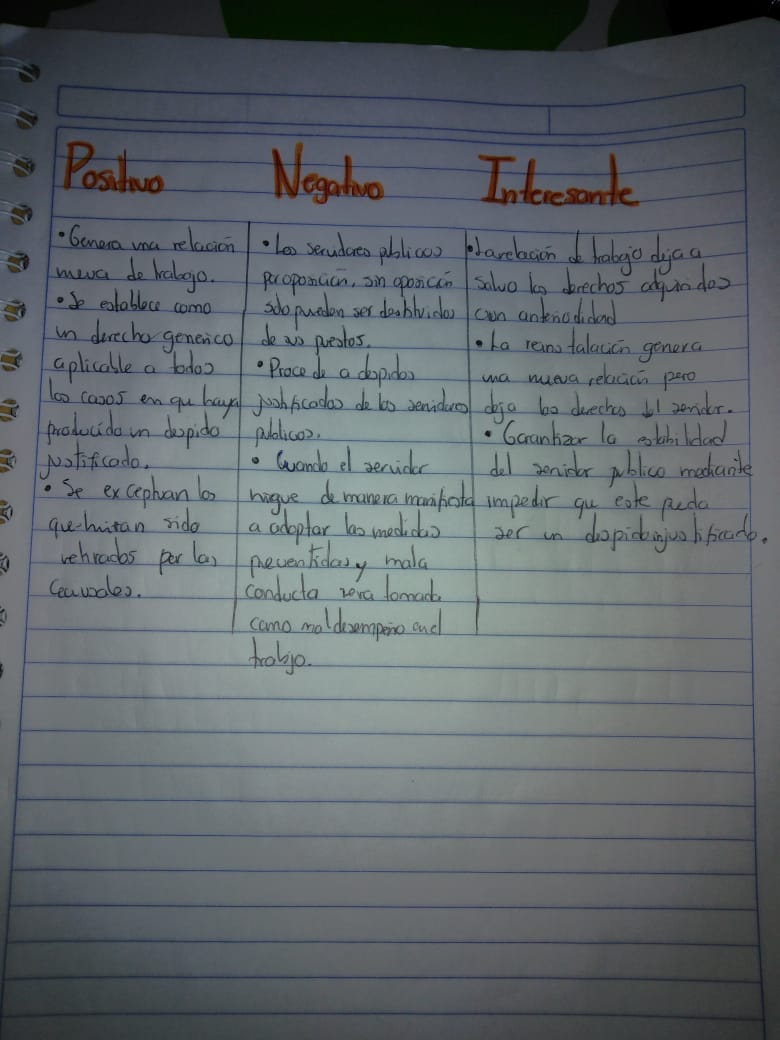 Positivo
Negativo
Interesante
• Genera una relación
nueva de trabajo.
• Se establece como
un derecho generico
aplicable a todos
los casos en que haya
producido un despido
justificado.
• Se exceptuan los
que hutan sido
rehrados por las
Causales.
• Los servidores publicos
por oposición, sin oposición
solo pueden ser destituidos
de sus puestos.
• Procede a despidos
justificados de los servidores
publicos.
• Cuando el servidor
niegue de manera manifiesta
a adoptar las medidas
preventidas y mala
conducta sera tomada
como mal desempeño en el
trabajo.
• La relación de trabajo deja a
salvo los derechos adquiridos
con anterioridad
• La reinstalación genera
una nueva relación pero
deja los derechos del servidor.
• Garantizar la estabilidad
del servidor publico mediante
impedir que este pueda
ser un despido injustificado.